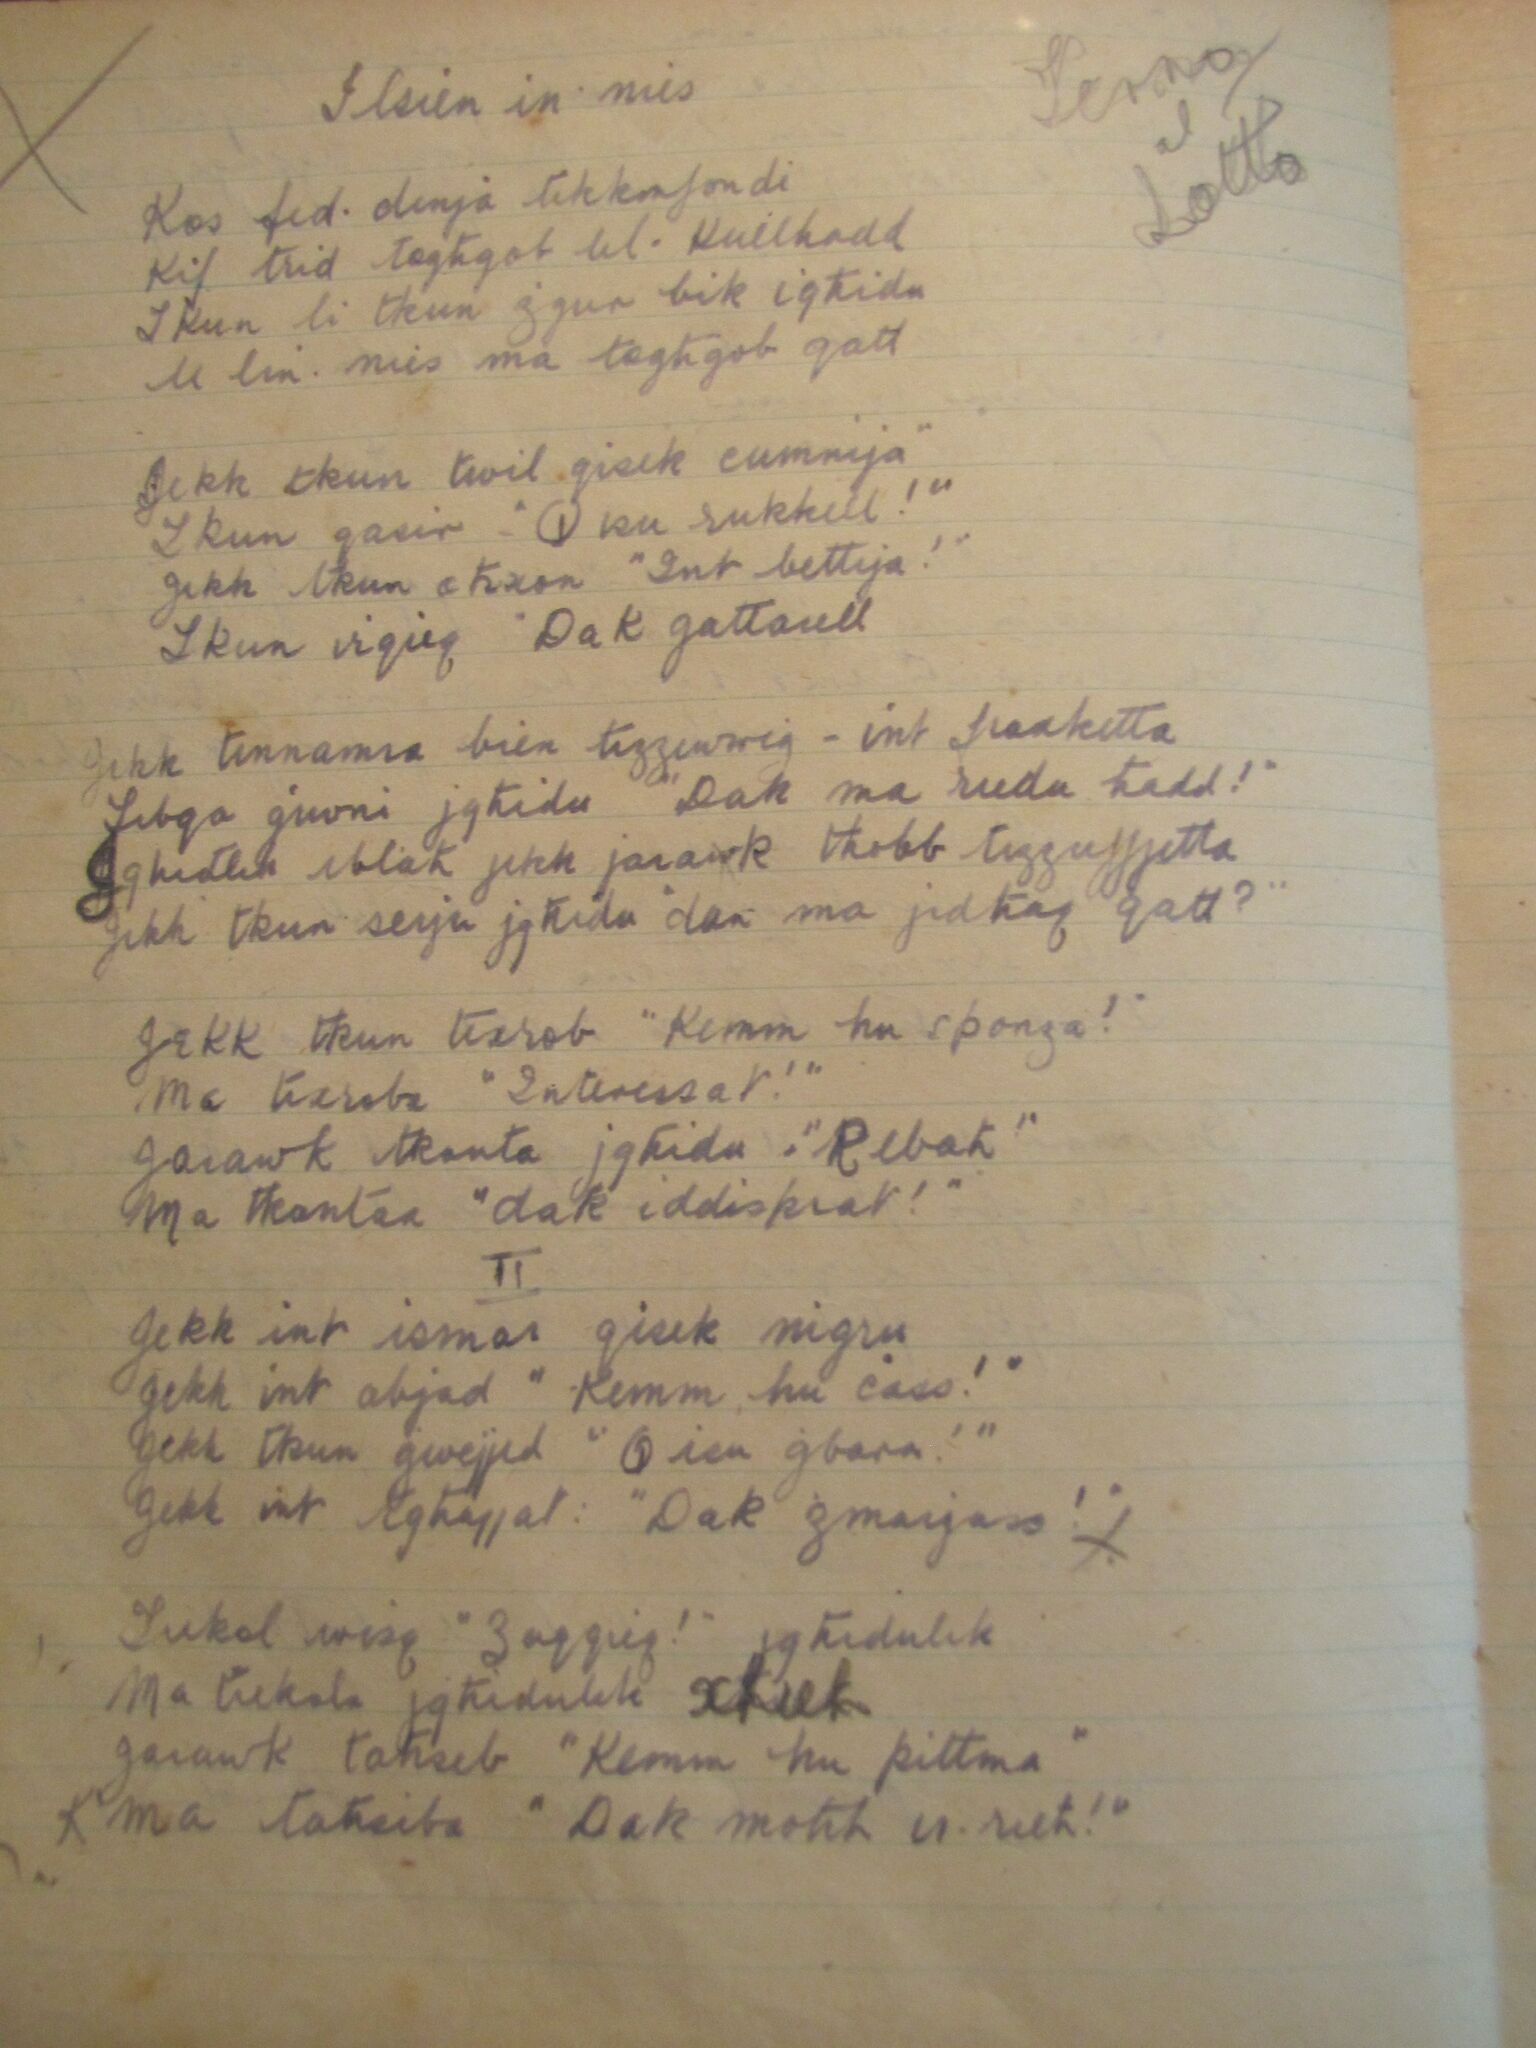 Ilsien in-nies
Terno
al
Lotto
Kos fed-dinja tikkonfondi
Kif trid togħġob lil-kullħadd
Ikun li tkun żgur bik igħidu
Li lin-nies ma togħġob qatt
Jekk tkun twil qisek ċumnija"
Ikun qasir - "O isu rukkell!"
Jekk tkun oħxon "Int bettija!"
Ikun irqieq "Dak gattarell
Jekk tinnamra biex tizzewweġ - int fraxketta
Tibqa ġuvni jgħidu "Dak ma riedu ħadd!"
Igħidlek iblah jekk jarawk tħobb tizzuffjetta
Jekk tkun serju jgħidu "dan ma jidħaq qatt?"
Jekk tkun tixrob "Kemm hu sponża!"
Ma tixrobx "Interessat!"
Jarawk tkanta jgħidu "Rebaħ"
Ma tkantax "dak iddisprat!"
II
Jekk int ismar qisek nigru
Jekk int abjad "Kemm hu ċass!"
Jekk tkun ġwejjed "O isu ġbara!"
Jekk int tgħajjat: "Dak żmarjass!"
Tiekol wisq "Żaqqieq!" jgħidulek
Ma tiekolx jgħidulek xħieħ
Jarawk taħseb "Kemm hu pittma"
Ma taħsibx "Dak moħħ ir-rieħ!"